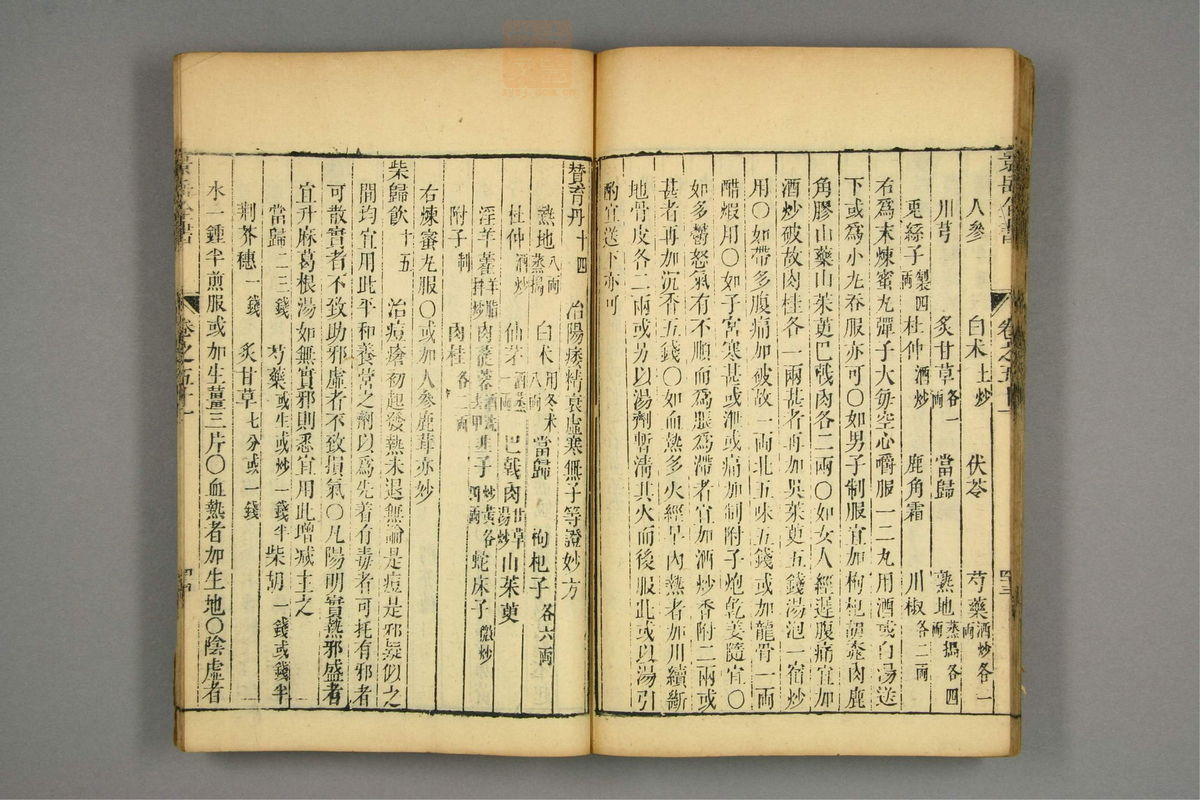 人參 白朮土炒 茯苓 芍藥酒炒各一兩
川芎 炙甘草各一兩 當歸 熟地蒸搗各四兩
兎絲子製四兩 杜仲酒炒 鹿角霜 川椒各二兩
右爲末煉蜜丸彈子大每空心嚼服一二丸用酒或白湯送
下或爲小丸吞服亦可〇如男子制服宜加枸杞胡桃肉鹿
角膠山藥山茱萸巴戟肉各二兩〇如女人經遲腹痛宜加
酒炒破故肉桂各一兩甚者再加吳茱萸五錢湯泡一宿炒
用〇如帶多腹痛加破故一兩北五味五錢或加龍骨一兩
醋煆用〇如子宮寒甚或泄或痛加制附子炮乾姜隨宜〇
如多鬱怒氣有不順而爲脹爲滯者宜加酒炒香附二兩或
甚者再加沉香五錢〇如血熱多火經早內熱者加川續斷
地骨皮各二兩或另以湯劑暫清其火而後服此或以湯引
酌宜送下亦可
賛育丹十四 治陽痿精衰虛寒無子等證妙方
熟地八兩蒸搗 白朮用冬朮八兩 當歸 枸杞子各六兩
杜仲酒炒 仙茅酒蒸一兩 巴戟肉甘草湯炒 山茱萸
淫羊藿羊脂拌炒 肉蓯蓉酒洗去甲 韭子炒黃各四兩 蛇床子微炒
附子制 肉桂各二兩
右煉蜜丸服〇或加人參鹿茸亦妙
柴歸飲十五 治痘瘡初起發熱未退無論是痘是邪疑似之
間均宜用此平和養營之劑以爲先着有毒者可托有邪者
可散實者不致助邪虛者不致損氣〇凡陽明實熱邪盛者
宜升麻葛根湯如無實邪則悉宜用此增減主之
當歸二三錢 芍藥或生或炒一錢半 柴胡一錢或錢半
荆芥穗一錢 炙甘草七分或一錢
水一鍾半煎服或加生薑三片〇血熱者加生地〇陰虛者